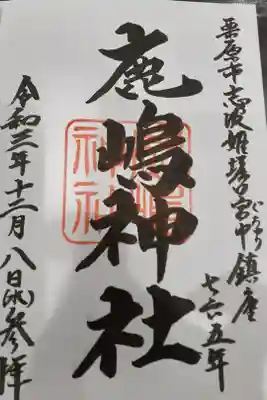 栗原市志波姫堀口宮中鎮座
七六五年
鹿嶋神社
令和三年十二月八日(水)参拝